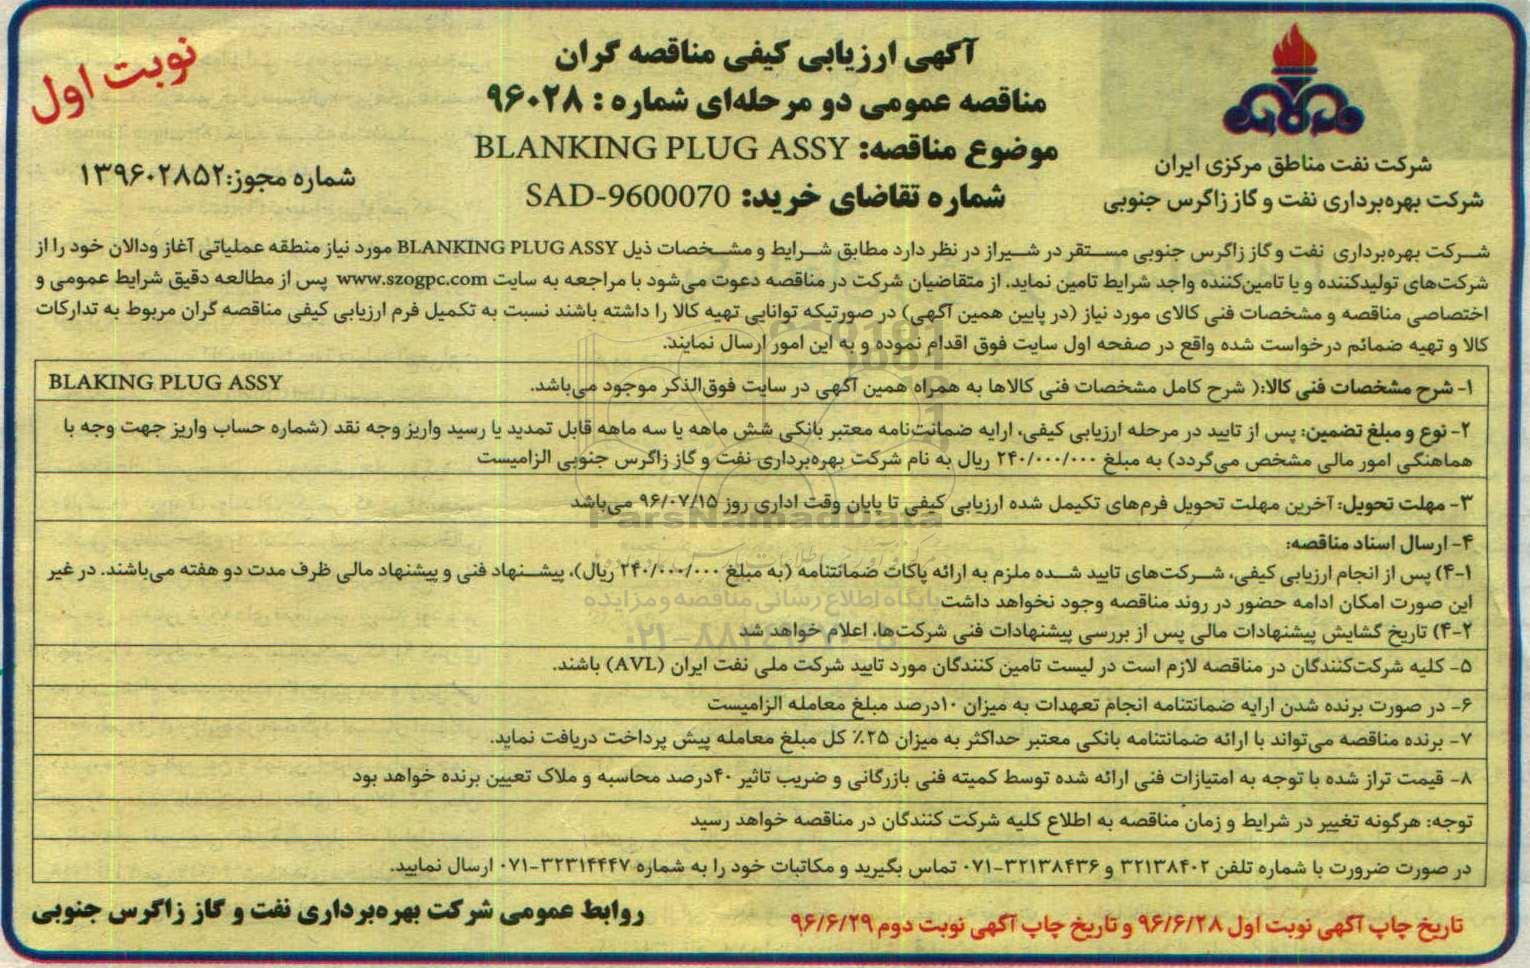 نوبت اول
آگهی ارزیابی کیفی مناقصه گران
مناقصه عمومی دو مرحله‌ای شماره : ۹۶۰۲۸
موضوع مناقصه: BLANKING PLUG ASSY
شماره تقاضای خرید: SAD-9600070
شرکت نفت مناطق مرکزی ایران
شرکت بهره‌برداری نفت و گاز زاگرس جنوبی
شماره مجوز:۱۳۹۶۰۲۸۵۲
شــرکت بهره‌برداری نفت و گاز زاگرس جنوبی مســتقر در شــیراز در نظر دارد مطابق شــرایط و مشــخصات ذیل BLANKING PLUG ASSY مورد نیاز منطقه عملیاتی آغاز ودالان خود را از
شرکت‌های تولیدکننده و یا تامین‌کننده واجد شرایط تامین نماید. از متقاضیان شرکت در مناقصه دعوت می‌شود با مراجعه به سایت www.szogpc.com پس از مطالعه دقیق شرایط عمومی و
اختصاصی مناقصه و مشخصات فنی کالای مورد نیاز (در پایین همین آگهی) در صورتیکه توانایی تهیه کالا را داشته باشند نسبت به تکمیل فرم ارزیابی کیفی مناقصه گران مربوط به تدارکات
کالا و تهیه ضمائم درخواست شده واقع در صفحه اول سایت فوق اقدام نموده و به این امور ارسال نمایند.
۱- شرح مشخصات فنی کالا:( شرح کامل مشخصات فنی کالاها به همراه همین آگهی در سایت فوق‌الذکر موجود می‌باشد. BLAKING PLUG ASSY
۲- نوع و مبلغ تضمین: پس از تایید در مرحله ارزیابی کیفی، ارایه ضمانت‌نامه معتبر بانکی شش ماهه یا سه ماهه قابل تمدید یا رسید واریز وجه نقد (شماره حساب واریز جهت وجه با
هماهنگی امور مالی مشخص می‌گردد) به مبلغ ۲۴۰/۰۰۰/۰۰۰ ریال به نام شرکت بهره‌برداری نفت و گاز زاگرس جنوبی الزامیست
۳- مهلت تحویل: آخرین مهلت تحویل فرم‌های تکیمل شده ارزیابی کیفی تا پایان وقت اداری روز ۹۶/۰۷/۱۵ می‌باشد
ParsNamadData
۴- ارسال اسناد مناقصه:
۴-۱) پس از انجام ارزیابی کیفی، شــرکت‌های تایید شــده ملزم به ارائه پاکات ضمانتنامه (به مبلغ ۲۴۰/۰۰۰/۰۰۰ ریال)، پیشــنهاد فنی و پیشنهاد مالی ظرف مدت دو هفته می‌باشند. در غیر
این صورت امکان ادامه حضور در روند مناقصه وجود نخواهد داشت
پایگاه اطلاع رسانی مناقصه و مزایده
۴-۲) تاریخ گشایش پیشنهادات مالی پس از بررسی پیشنهادات فنی شرکت‌ها، اعلام خواهد شد
۵- کلیه شرکت‌کنندگان در مناقصه لازم است در لیست تامین کنندگان مورد تایید شرکت ملی نفت ایران (AVL) باشند.
۶- در صورت برنده شدن ارایه ضمانتنامه انجام تعهدات به میزان ۱۰درصد مبلغ معامله الزامیست
۷- برنده مناقصه می‌تواند با ارائه ضمانتنامه بانکی معتبر حداکثر به میزان ۲۵٪ کل مبلغ معامله پیش پرداخت دریافت نماید.
۸- قیمت تراز شده با توجه به امتیازات فنی ارائه شده توسط کمیته فنی بازرگانی و ضریب تاثیر ۴۰درصد محاسبه و ملاک تعیین برنده خواهد بود
توجه: هرگونه تغییر در شرایط و زمان مناقصه به اطلاع کلیه شرکت کنندگان در مناقصه خواهد رسید
در صورت ضرورت با شماره تلفن ۳۲۱۳۸۴۰۲ و ۳۲۱۳۸۴۳۶-۰۷۱ تماس بگیرید و مکاتبات خود را به شماره ۳۲۳۱۴۴۴۷-۰۷۱ ارسال نمایید.
تاریخ چاپ آگهی نوبت اول ۹۶/۶/۲۸ و تاریخ چاپ آگهی نوبت دوم ۹۶/۶/۲۹
روابط عمومی شرکت بهره‌برداری نفت و گاز زاگرس جنوبی